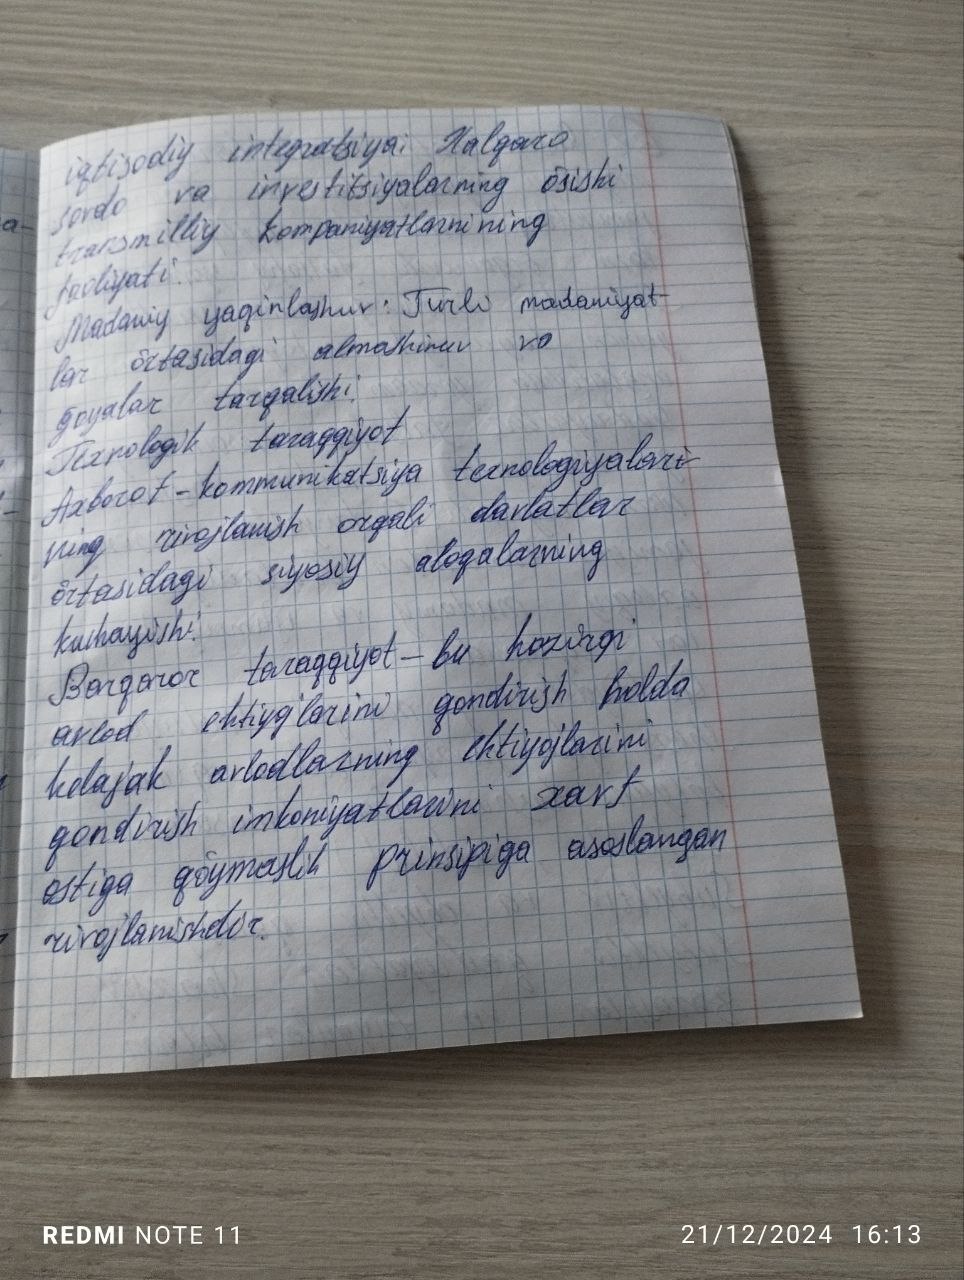 iqtisodiy integratsiya: Xalqaro
savdo va investitsiyalarning ōsishi
transmilliy kompaniyatlarnining
faoliyati.
Madaniy yaqinlashuv: Turli madaniyat-
lar ōrtasidagi almashinuv va
ğoyalar tarqalishi.
Texnologik taraqqiyot
Axborot-kommunikatsiya texnologiyalari-
ning rivojlanish orqali davlatlar
ōrtasidagi siyosiy aloqalarning
kuchayishi.
Barqaror taraqqiyot – bu hozirgi
avlod ehtiyojlarini qondirish holda
kelajak avlodlarning ehtiyojlarini
qondirish imkoniyatlarini xavf
ostiga qōymaslik prinsipiga asoslangan
rivojlanishdir.
REDMI NOTE 11
21/12/2024 16:13